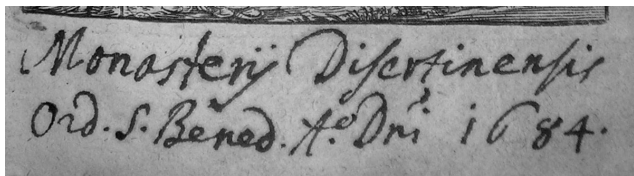 Monasterij Disertinensis
Ord. S. Bened. Aº. Dni 1684.